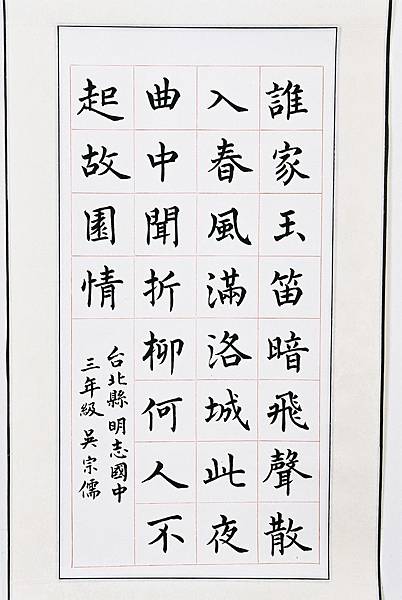 誰家玉笛暗飛聲散
入春風滿洛城此夜
曲中聞折柳何人不
起故園情
台北縣明志國中
三年級吳宗儒